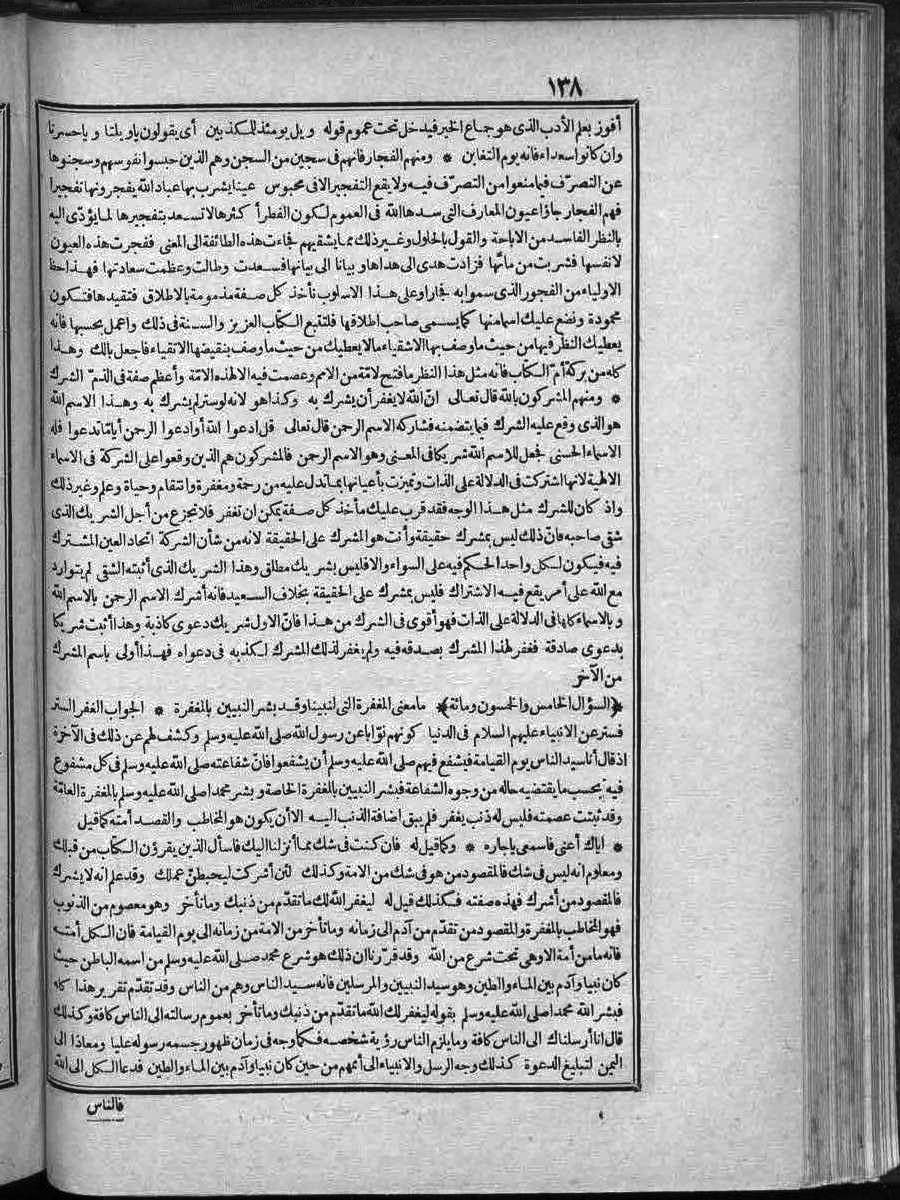 ١٣٨
أفوز بعلم الأدب الذى هو جماع الخير فيدخل تحت عموم قوله ويل يومئذ للمكذبين أى يقولون ياويلتا وياحسرتا
وان كانوا سعداء فانه يوم التغابن * ومنهم الفجار فانهم فى سجين من السجن وهم الذين حبسوا نفوسهم وسجنوها
عن التصرّف فيما منعوا من التصرّف فيه ولا يقع التفجير الا فى محبوس عينا يشرب بها عباد الله يفجرونها تفجيرا
فهم الفجار جاؤا عيون المعارف التى سدها الله فى العموم لكون الفطر أكثرها لا تسعد بتفجيرها لما يؤدّى اليه
بالنظر الفاسد من الاباحة والقول بالحلول وغير ذلك مما يشقيهم فجاءت هذه الطائفة الى المعنى ففجرت هذه العيون
لانفسها فشربت من مائها فزادت هدى الى هداها وبيانا الى بيانها فسعدت وطالت وعظمت سعادتها فهذا حظ
الاولياء من الفجور الذى سموا به فجارا وعلى هذا الاسلوب تأخذ كل صفة مذمومة بالاطلاق فتقيدها فتكون
محمودة وتضع عليك اسما منها كما يسمى صاحب اطلاقها فلتتبع الكتاب العزيز والسنة فى ذلك واعمل بحسبها فانه
يعطيك النظر فيها من حيث ما وصف بها الاشقياء مالا يعطيك من حيث ما وصف بنقيضها الاتقياء فاجعل بالك وهذا
كله من بركة أمّ الكتاب فانه مثل هذا النظر ما فتح لامّة من الامم وعصمت فيه الا لهذه الامّة وأعظم صفة فى الذمّ الشرك
* ومنهم المشركون بالله قال تعالى انّ الله لا يغفر أن يشرك به وكذا هو لانه لو ستر لم يشرك به وهذا الاسم الله
هو الذى وقع عليه الشرك فيما يتضمنه فشاركه الاسم الرحمن قال تعالى قل ادعوا الله أو ادعوا الرحمن أيا ما تدعوا فله
الاسماء الحسنى فجعل للاسم الله شريكا فى المعنى وهو الاسم الرحمن فالمشركون هم الذين وقعوا على الشركة فى الاسماء
الالهية لانها اشتركت فى الدلالة على الذات وتميزت بأعيانها بما تدل عليه من رحمة ومغفرة وانتقام وحياة وعلم وغير ذلك
واذ كان للشرك مثل هذا الوجه فقد قرب عليك مأخذ كل صفة يمكن ان تغفر فلا تجزع من أجل الشريك الذى
شقى صاحبه فانّ ذلك ليس بمشرك حقيقة وأنت هو المشرك على الحقيقة لانه من شأن الشركة اتحاد العين المشترك
فيه فيكون لكل واحد الحكم فيه على السواء والا فليس بشريك مطلق وهذا الشريك الذى أثبته الشقى لم يتوارد
مع الله على أمر يقع فيه الاشتراك فليس بمشرك على الحقيقة بخلاف السعيد فانه أشرك الاسم الرحمن بالاسم الله
وبالاسماء كلها فى الدلالة على الذات فهو أقوى فى الشرك من هذا فانّ الاول شريك دعوى كاذبة وهذا أثبت شريكا
بدعوى صادقة فغفر لهذا المشرك بصدقه فيه ولم يغفر لذلك المشرك لكذبه فى دعواه فهذا أولى باسم المشرك
من الآخر
﴿السؤال الخامس والخمسون ومائة﴾ ما معنى المغفرة التى لنبينا وقد بشر النبيين بالمغفرة * الجواب الغفر الستر
فستر عن الانبياء عليهم السلام فى الدنيا كونهم نوّابا عن رسول الله صلى الله عليه وسلم وكشف لهم عن ذلك فى الآخرة
اذ قال أنا سيد الناس يوم القيامة فيشفع فيهم صلى الله عليه وسلم أن يشفعوا فانّ شفاعته صلى الله عليه وسلم فى كل مشفوع
فيه بحسب ما يقتضيه حاله من وجوه الشفاعة فبشر النبيين بالمغفرة الخاصة وبشر محمدا صلى الله عليه وسلم بالمغفرة العامّة
وقد ثبتت عصمته فليس له ذنب يغفر فلم يبق اضافة الذنب اليه الا أن يكون هو المخاطب والقصد أمته كما قيل
* اياك أعنى فاسمعى ياجاره * وكما قيل له فان كنت فى شك مما أنزلنا اليك فاسأل الذين يقرؤن الكتاب من قبلك
ومعلوم انه ليس فى شك فالمقصود من هو فى شك من الامة وكذلك لئن أشركت ليحبطنّ عملك وقد علم انه لا يشرك
فالمقصود من أشرك فهذه صفته فكذلك قيل له ليغفر الله لك ما تقدّم من ذنبك وما تأخر وهو معصوم من الذنوب
فهو المخاطب بالمغفرة والمقصود من تقدّم من آدم الى زمانه وما تأخر من الامة من زمانه الى يوم القيامة فان الكل أمته
فانه ما من أمة الا وهى تحت شرع من الله وقد قرّرنا ان ذلك هو شرع محمد صلى الله عليه وسلم من اسمه الباطن حيث
كان نبيا وآدم بين الماء والطين وهو سيد النبيين والمرسلين فانه سيد الناس وهم من الناس وقد تقدّم تقرير هذا كله
فبشر الله محمدا صلى الله عليه وسلم بقوله ليغفر لك الله ما تقدّم من ذنبك وما تأخر بعموم رسالته الى الناس كافة وكذلك
قال انا أرسلناك الى الناس كافة وما يلزم الناس رؤية شخصه فكما وجه فى زمان ظهور جسمه رسوله عليا ومعاذا الى
اليمن لتبليغ الدعوة كذلك وجه الرسل والانبياء الى أممهم من حين كان نبيا وآدم بين الماء والطين فدعا الكل الى الله
فالناس